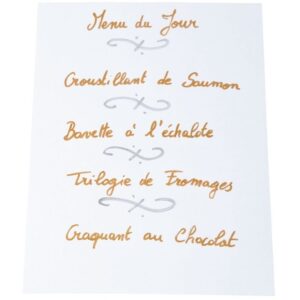 Menu du Jour
Croustillant de Saumon
Bavette à l'échalote
Trilogie de Fromages
Craquant au Chocolat